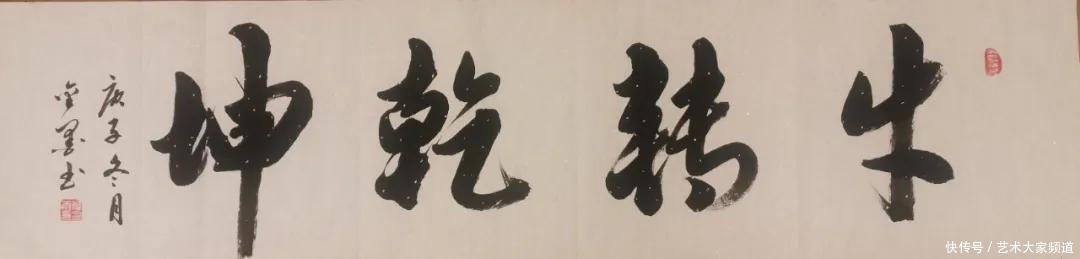 牛轉乾坤
庚子冬月
墨书
快传号 / 艺术大家频道